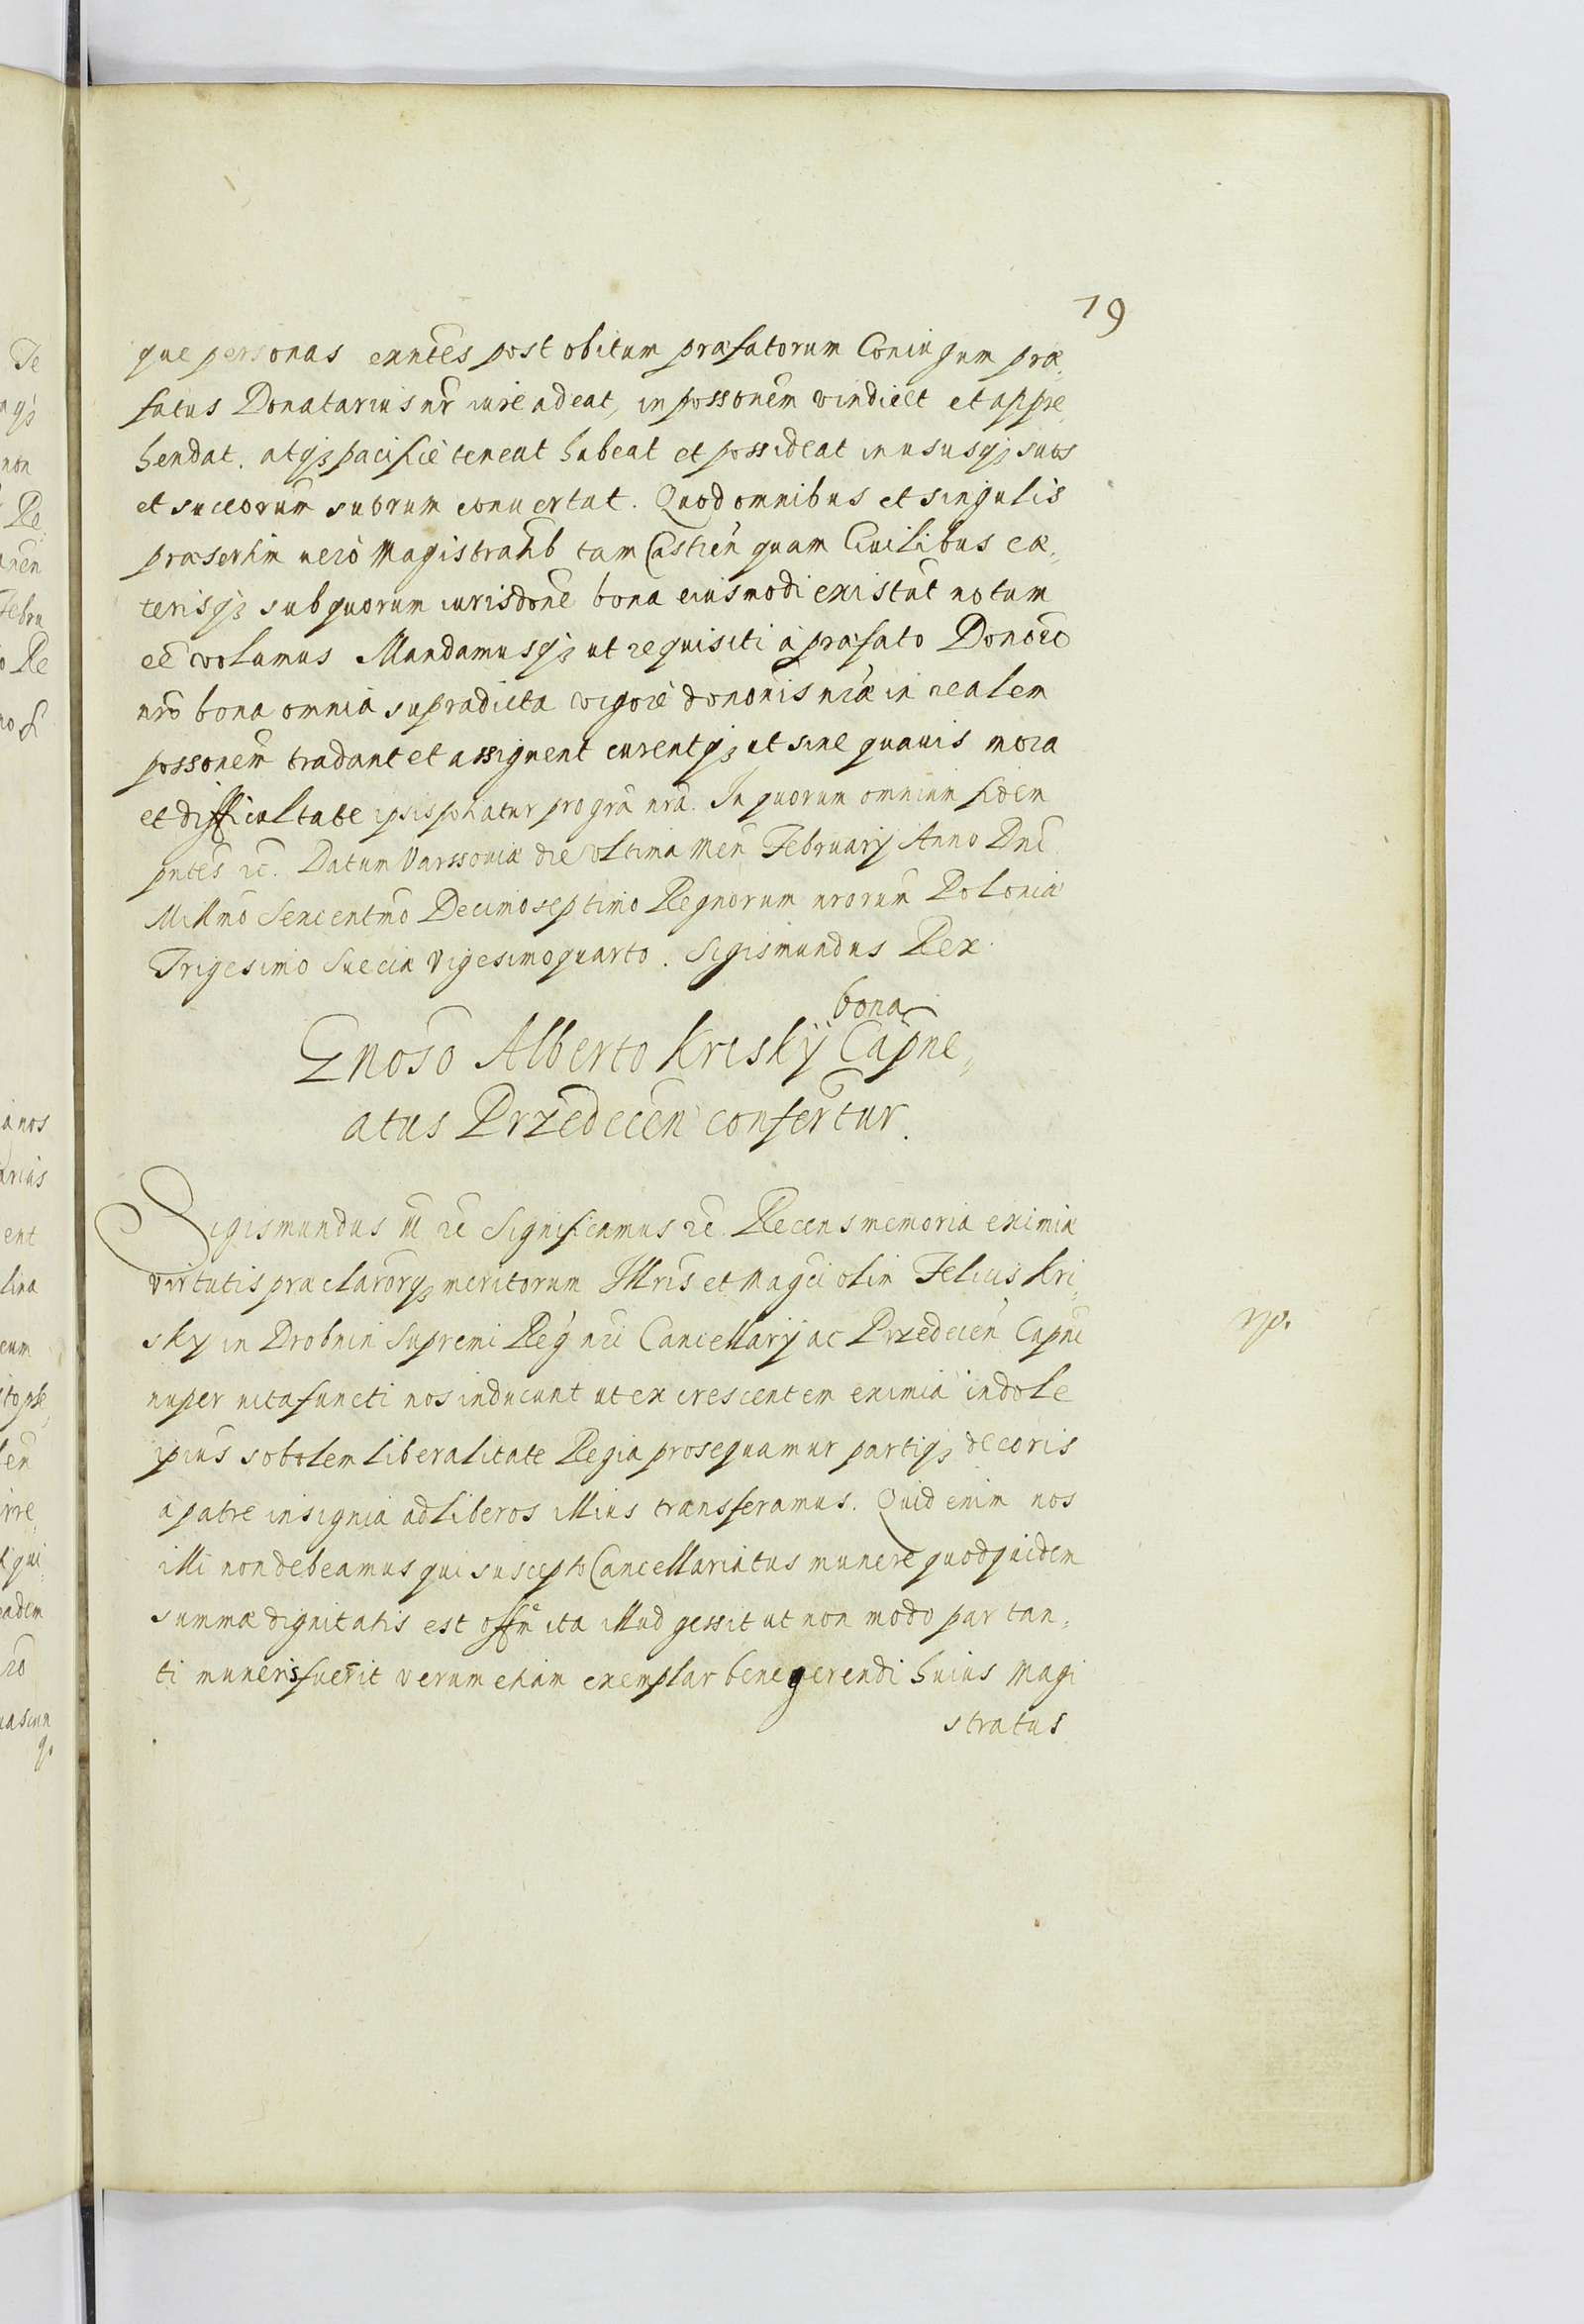 19
que personas exn̄tes post obitum præfatorum Coniugum præ,
fatus Donatarius nr̄ iure adeat, in posson̄em vindicet et appre
hendat. atq₃ pacificè teneat habeat et possideat in ususq₃ suos
et succorum̄ suorum conuertat. Quod omnibus et singulis
præsertim uerò Magistratib tam Castren̄ quam Ciuilibus cæ,
terisq₃ sub quorum iurisdōne bona eiusmodi existūt notum
eē volumus Mandamusq₃ ut requisiti à præfato Donōrio
nrō bona omnia supradicta vigore dononis nr̄æ in realem
posson̄em tradant et assignent curentq₃ ut sine quauis mora
et difficultate ipsis pohatur pro gr̄a nrā. In quorum omnium fidem
pn̄tes rc. Datum Varssoviæ die vltima Men̄ February Anno Dn̄i
Millm̄o Sexcentm̄o Decimoseptimo Regnorum nrorum̄ Poloniæ
Trigesimo Sueciæ Vigesimoquarto. Sigismundus Rex.
bona
Gnoso Alberto Krisky Capne,,
atus Przedecen̄ confertur.
Sigismundus III rc Significamus rc. Recens memoria eximiæ
virtutis præclarorq₃ meritorum Illrīs et Magci olim Felicis Kri,
sky in Drobnin Supremi Reg nri Cancellarij ac Przedecen̄ Capnei
nuper vita functi nos inducunt ut excrescentem eximia indole
ipius sobolem liberalitate Regia prosequamur partiq₃ decoris
à patre insignia ad liberos illius transferamus. Quid enim nos
illi non debeamus qui suscepto Cancellariatus munere quod quidem
summæ dignitatis est offm ita illud gessit ut non modo par tan,
ti muneris fuerit verum etiam exemplar bene gerendi huius Magi
stratus
np.